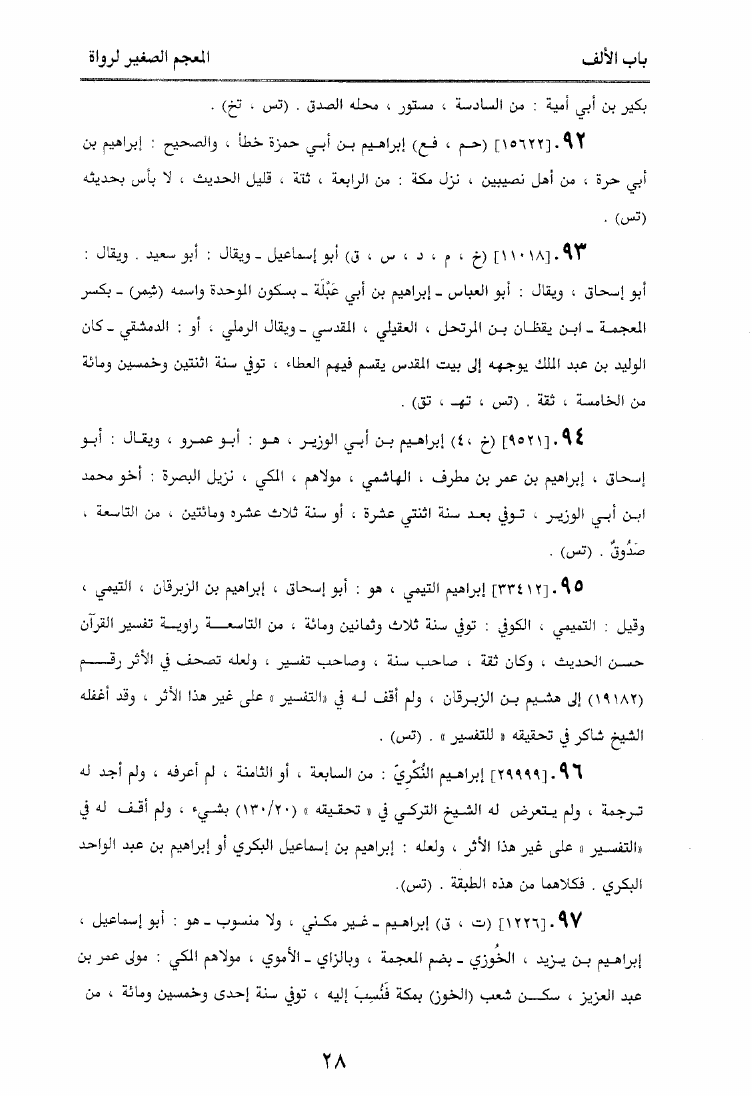 باب الألف
المعجم الصغير لرواة
بكير بن أبي أمية : من السادسة ، مستور ، محله الصدق . (تس ، تخ) .
٩٢.[١٥٦٢٢] (حم ، فع) إبراهيم بن أبي حمزة خطأ ، والصحيح : إبراهيم بن
أبي حرة ، من أهل نصيبين ، نزل مكة : من الرابعة ، ثتة ، قليل الحديث ، لا بأس بحديثه
(تس) .
٩٣.[١١٠١٨] (خ ، م ، د ، س ، ق) أبو إسماعيل ـ ويقال : أبو سعيد . ويقال :
أبو إسحاق ، ويقال : أبو العباس ـ إبراهيم بن أبي عَبْلَة ـ بسكون الموحدة واسمه (شِمر) ـ بكسر
المعجمة ـ ابن يقظان بن المرتحل ، العقيلي ، المقدسي ـ ويقال الرملي ، أو : الدمشقي ـ كان
الوليد بن عبد الملك يوجهه إلى بيت المقدس يقسم فيهم العطاء ، توفي سنة اثنتين وخمسين ومائة
من الخامسة ، ثقة . (تس ، تهـ ، تق) .
٩٤.[٩٥٢١] (خ ،٤) إبراهيم بن أبي الوزير ، هو : أبو عمرو ، ويقال : أبو
إسحاق ، إبراهيم بن عمر بن مطرف ، الهاشمي ، مولاهم ، المكي ، نزيل البصرة : أخو محمد
ابن أبي الوزير ، توفي بعد سنة اثنتي عشرة ، أو سنة ثلاث عشره ومائتين ، من التاسعة ،
صَدُوقٌ . (تس) .
٩٥.[٣٣٤١٢] إبراهيم التيمي ، هو : أبو إسحاق ، إبراهيم بن الزبرقان ، التيمي ،
وقيل : التميمي ، الكوفي : توفي سنة ثلاث وثمانين ومائة ، من التاسعة راوية تفسير القرآن
حسن الحديث ، وكان ثقة ، صاحب سنة ، وصاحب تفسير ، ولعله تصحف في الأثر رقم
(١٩١٨٢) إلى هشيم بن الزبرقان ، ولم أقف له في «التفسير » على غير هذا الأثر ، وقد أغفله
الشيخ شاكر في تحقيقه « للتفسير » . (تس) .
٩٦.[٢٩٩٩٩] إبراهيم النُّكْرِيّ : من السابعة ، أو الثامنة ، لم أعرفه ، ولم أجد له
ترجمة ، ولم يتعرض له الشيخ التركي في « تحقيقه » (١٣٠/٢٠) بشيء ، ولم أقف له في
«التفسير » على غير هذا الأثر ، ولعله : إبراهيم بن إسماعيل البكري أو إبراهيم بن عبد الواحد
البكري . فكلاهما من هذه الطبقة . (تس).
٩٧.[١٢٢٦] (ت ، ق) إبراهيم ـ غير مكني ، ولا منسوب ـ هو : أبو إسماعيل ،
إبراهيم بن يزيد ، الخُوزي ـ بضم المعجمة ، وبالزاي ـ الأموي ، مولاهم المكي : مولى عمر بن
عبد العزيز ، سكن شعب (الخوز) بمكة فَنُسِبَ إليه ، توفي سنة إحدى وخمسين ومائة ، من
٢٨